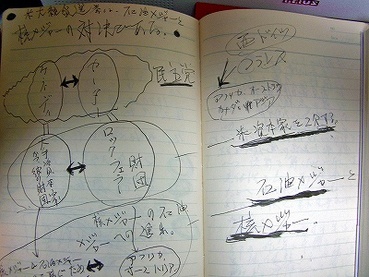 米大統領選挙は、石油メジャーと
核メジャーの対決である。
民主党
ケネディ
カーター
ロックフェラー
財団
核メジャーの石油
メジャーへの進系。
アフリカ、
オーストラリア
西ドイツ
フランス
アフリカ、オーストラリア
カナダ
米資本家を2分する。
石油メジャーと
核メジャー。